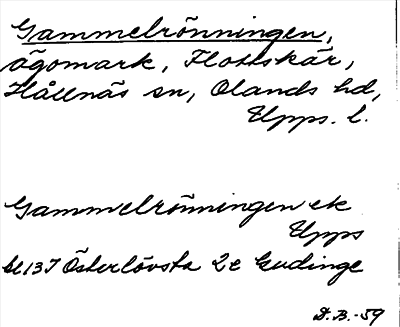 Gammelrönningen,
ägomark, Flottskär,
Hållnäs sn, Olands hd,
Upps. l.
Gammelrönningen ek
Upps
Bl 13 I Österlövsta 2e Gudinge
D. B. -59